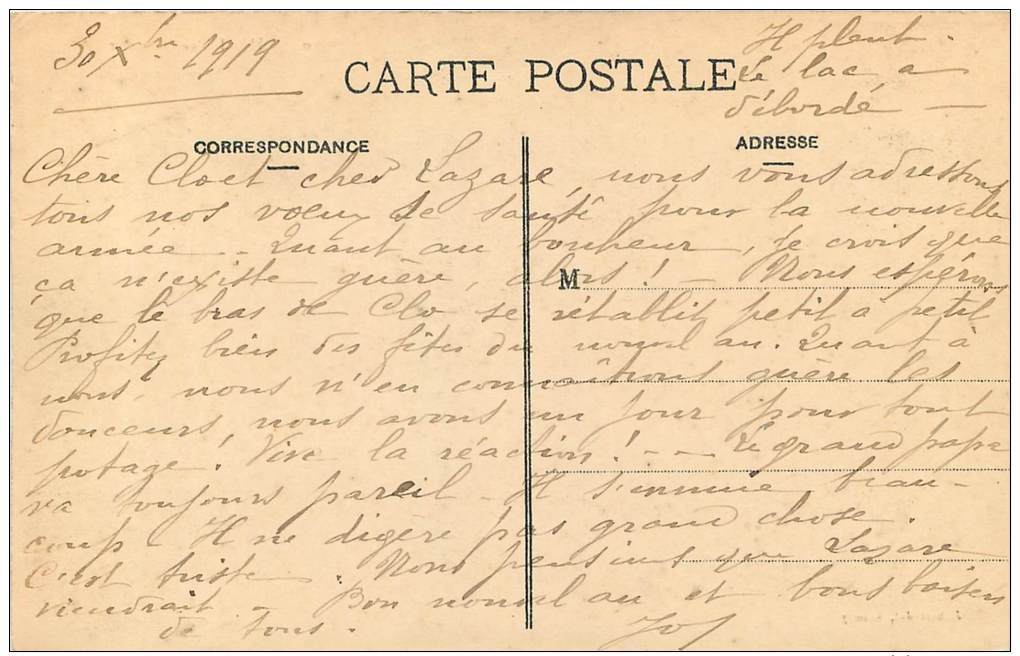 30 Xbre 1919
Il pleut.
Le lac a
débordé —
CARTE POSTALE
CORRESPONDANCE
ADRESSE
M
Chère Clo et cher Lazare, nous vous adressons
tous nos vœux de santé pour la nouvelle
année — Quant au bonheur, je crois que
ça n'existe guère, alors ! — Nous espérons
que le bras de Clo se rétablit petit à petit
Profitez bien des fêtes du nouvel an. Quant à
nous, nous n'en connaîtrons guère les
douceurs, nous avons un jour pour tout
potage ! Vive la réaction ! — — Le grand papa
va toujours pareil — Il s'ennuie beau-
coup — Il ne digère pas grand chose.
C'est triste. Nous pensions que Lazare
viendrait — Bon nouvel an et bons baisers
de tous.